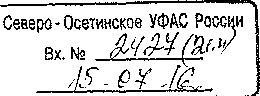 Северо-Осетинское УФАС России
Вх. № 2427 (2эл)
15-07 16г.